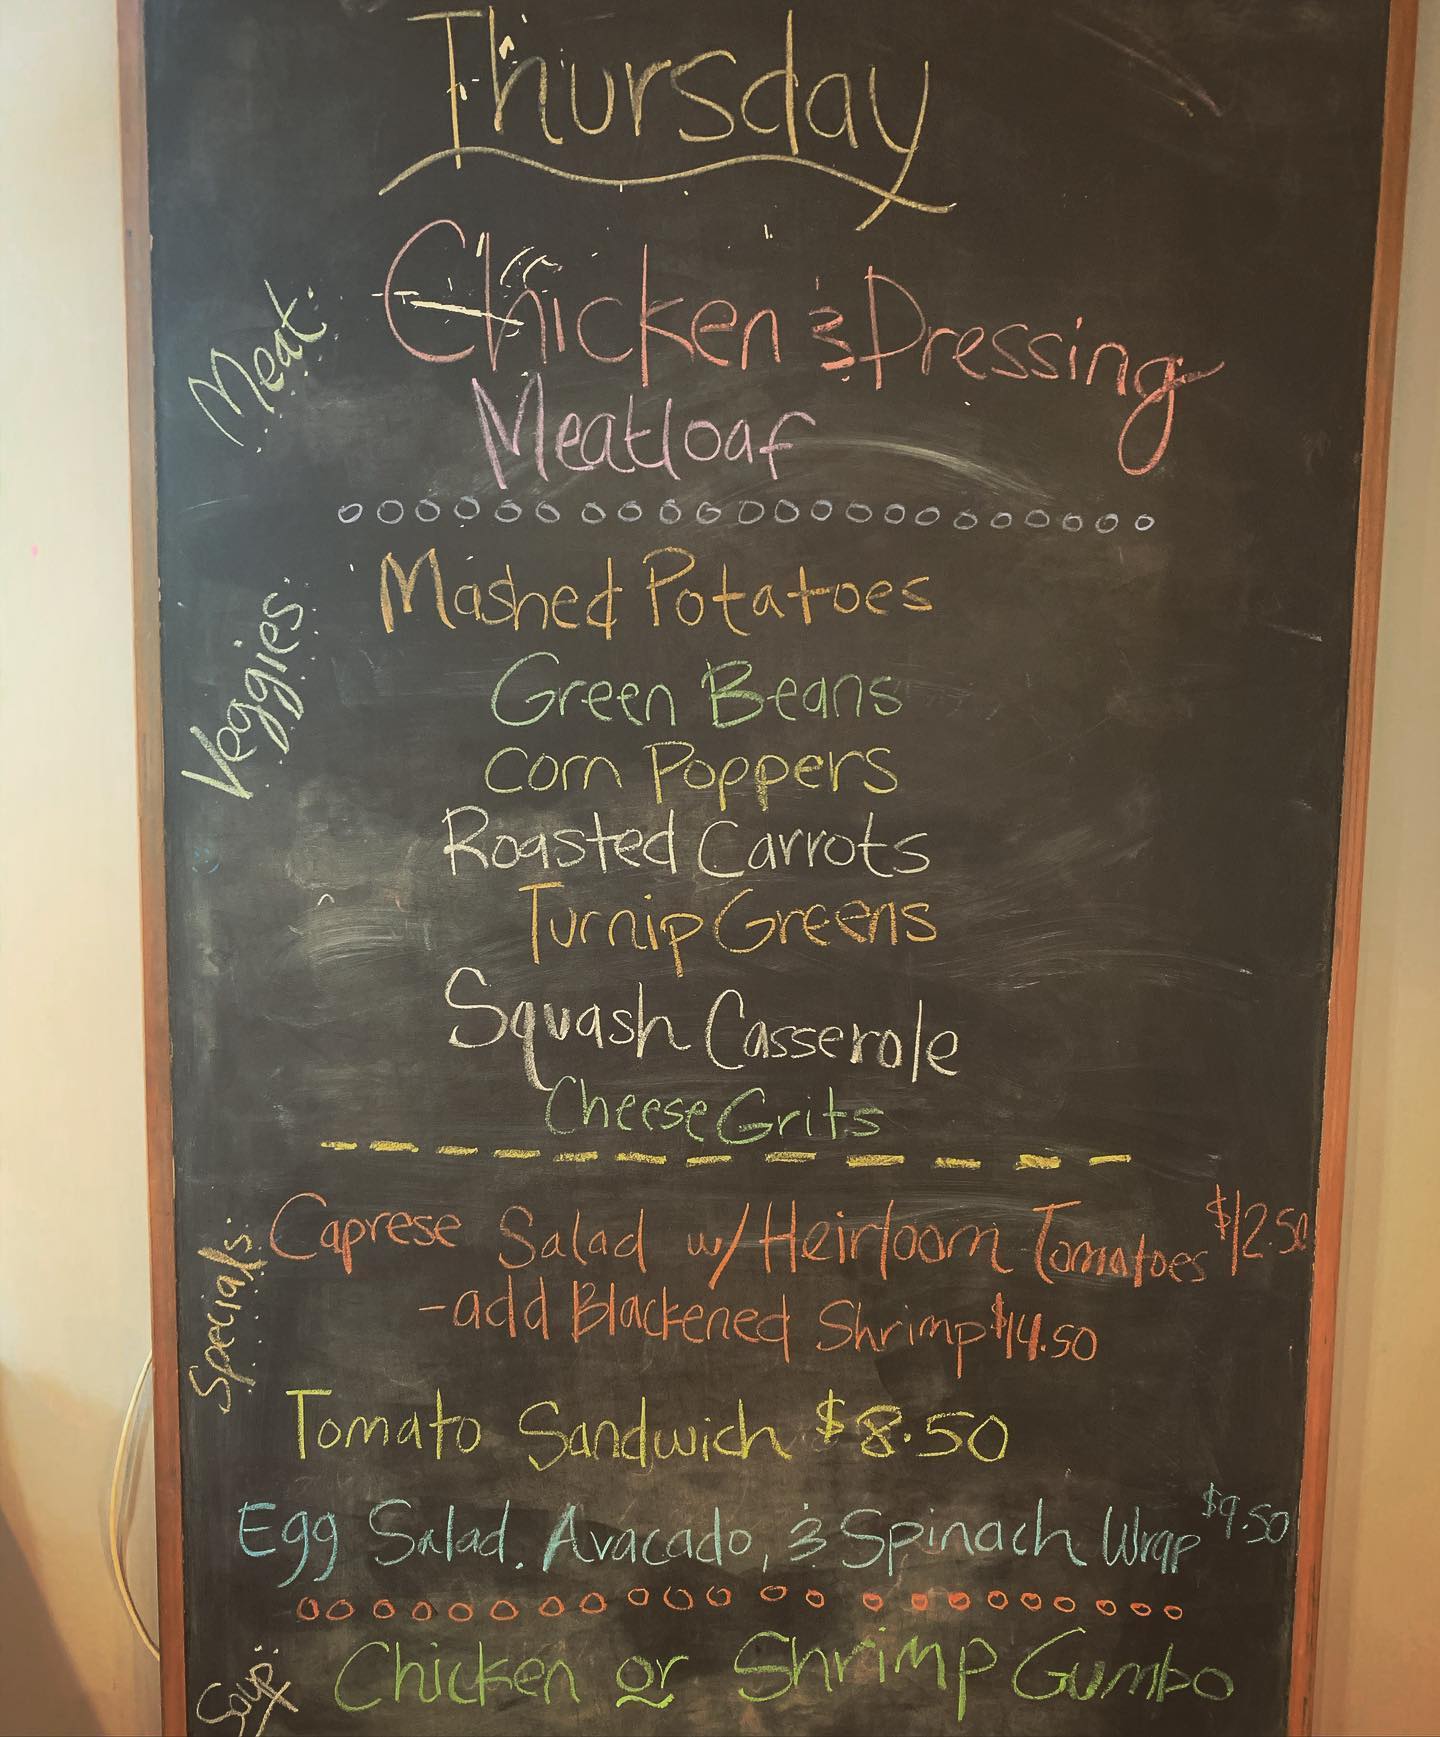 Thursday
Meat:
Chicken & Dressing
Meatloaf
Veggies:
Mashed Potatoes
Green Beans
Corn Poppers
Roasted Carrots
Turnip Greens
Squash Casserole
Cheese Grits
Specials:
Caprese Salad w/ Heirloom Tomatoes $12.50
-add Blackened Shrimp $14.50
Tomato Sandwich $8.50
Egg Salad, Avacado, & Spinach Wrap $9.50
Soup:
Chicken or Shrimp Gumbo